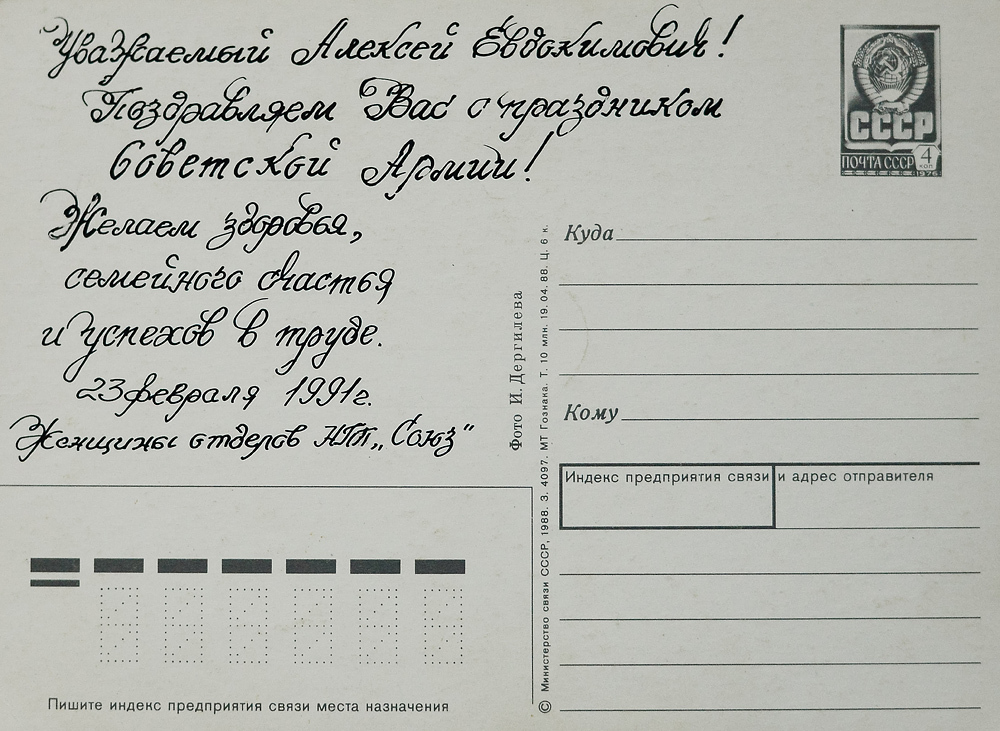 Уважаемый Алексей Евдокимович!
Поздравляем Вас с праздником
Советской Армии!
Желаем здоровья,
семейного счастья
и успехов в труде.
23 февраля 1991 г.
Женщины отделов НТТ „Союз"
СССР
ПОЧТА СССР 4 коп
1976
Куда
Кому
Индекс предприятия связи и адрес отправителя
Фото И. Дергилева
© Министерство связи СССР, 1988. З. 4097. МТ Гознака. Т. 10 млн. 19.04.88. Ц. 6 к.
Пишите индекс предприятия связи места назначения